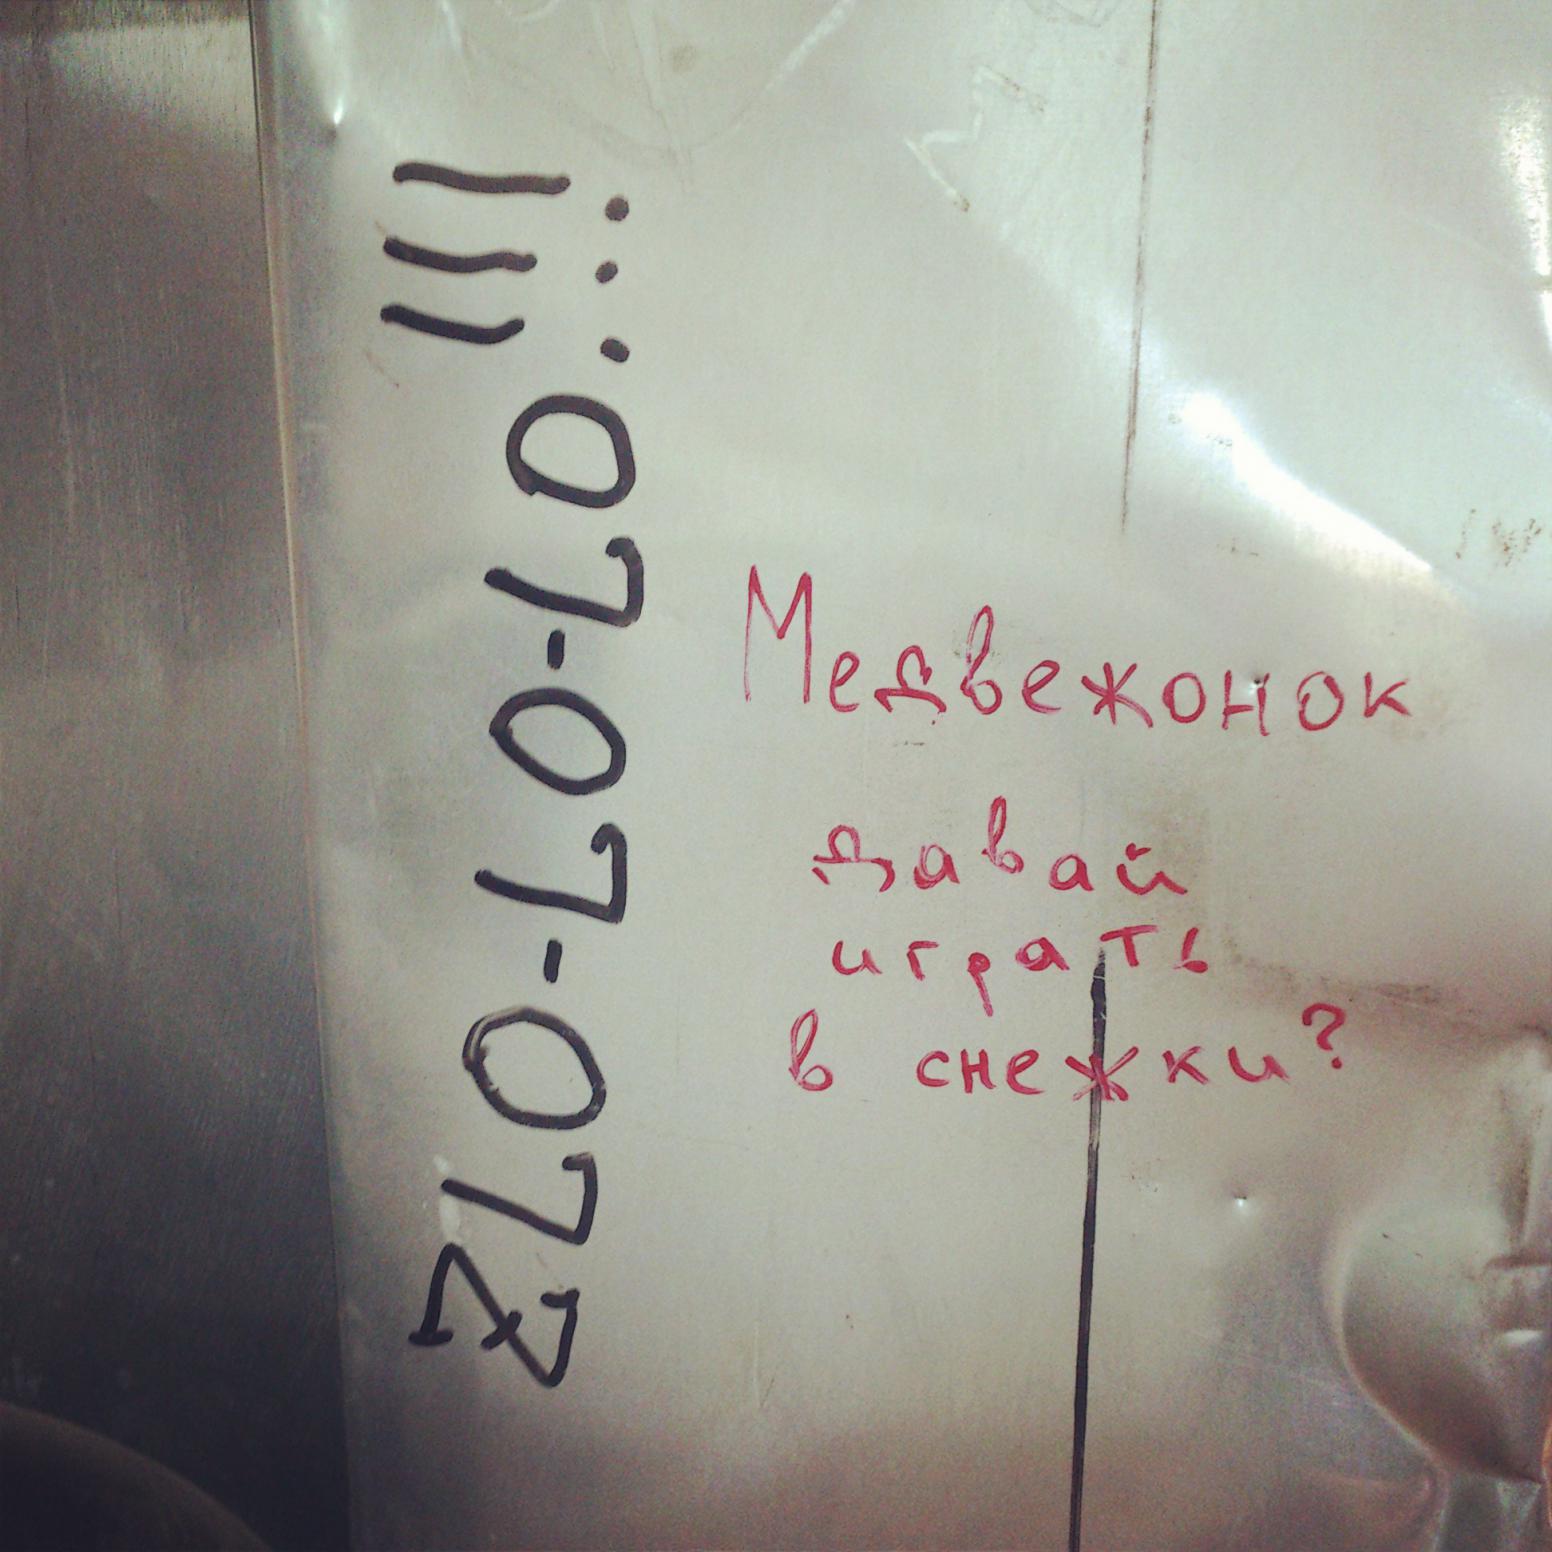 ZLO-LO-LO!!!
Медвежонок
давай
играть
в снежки?